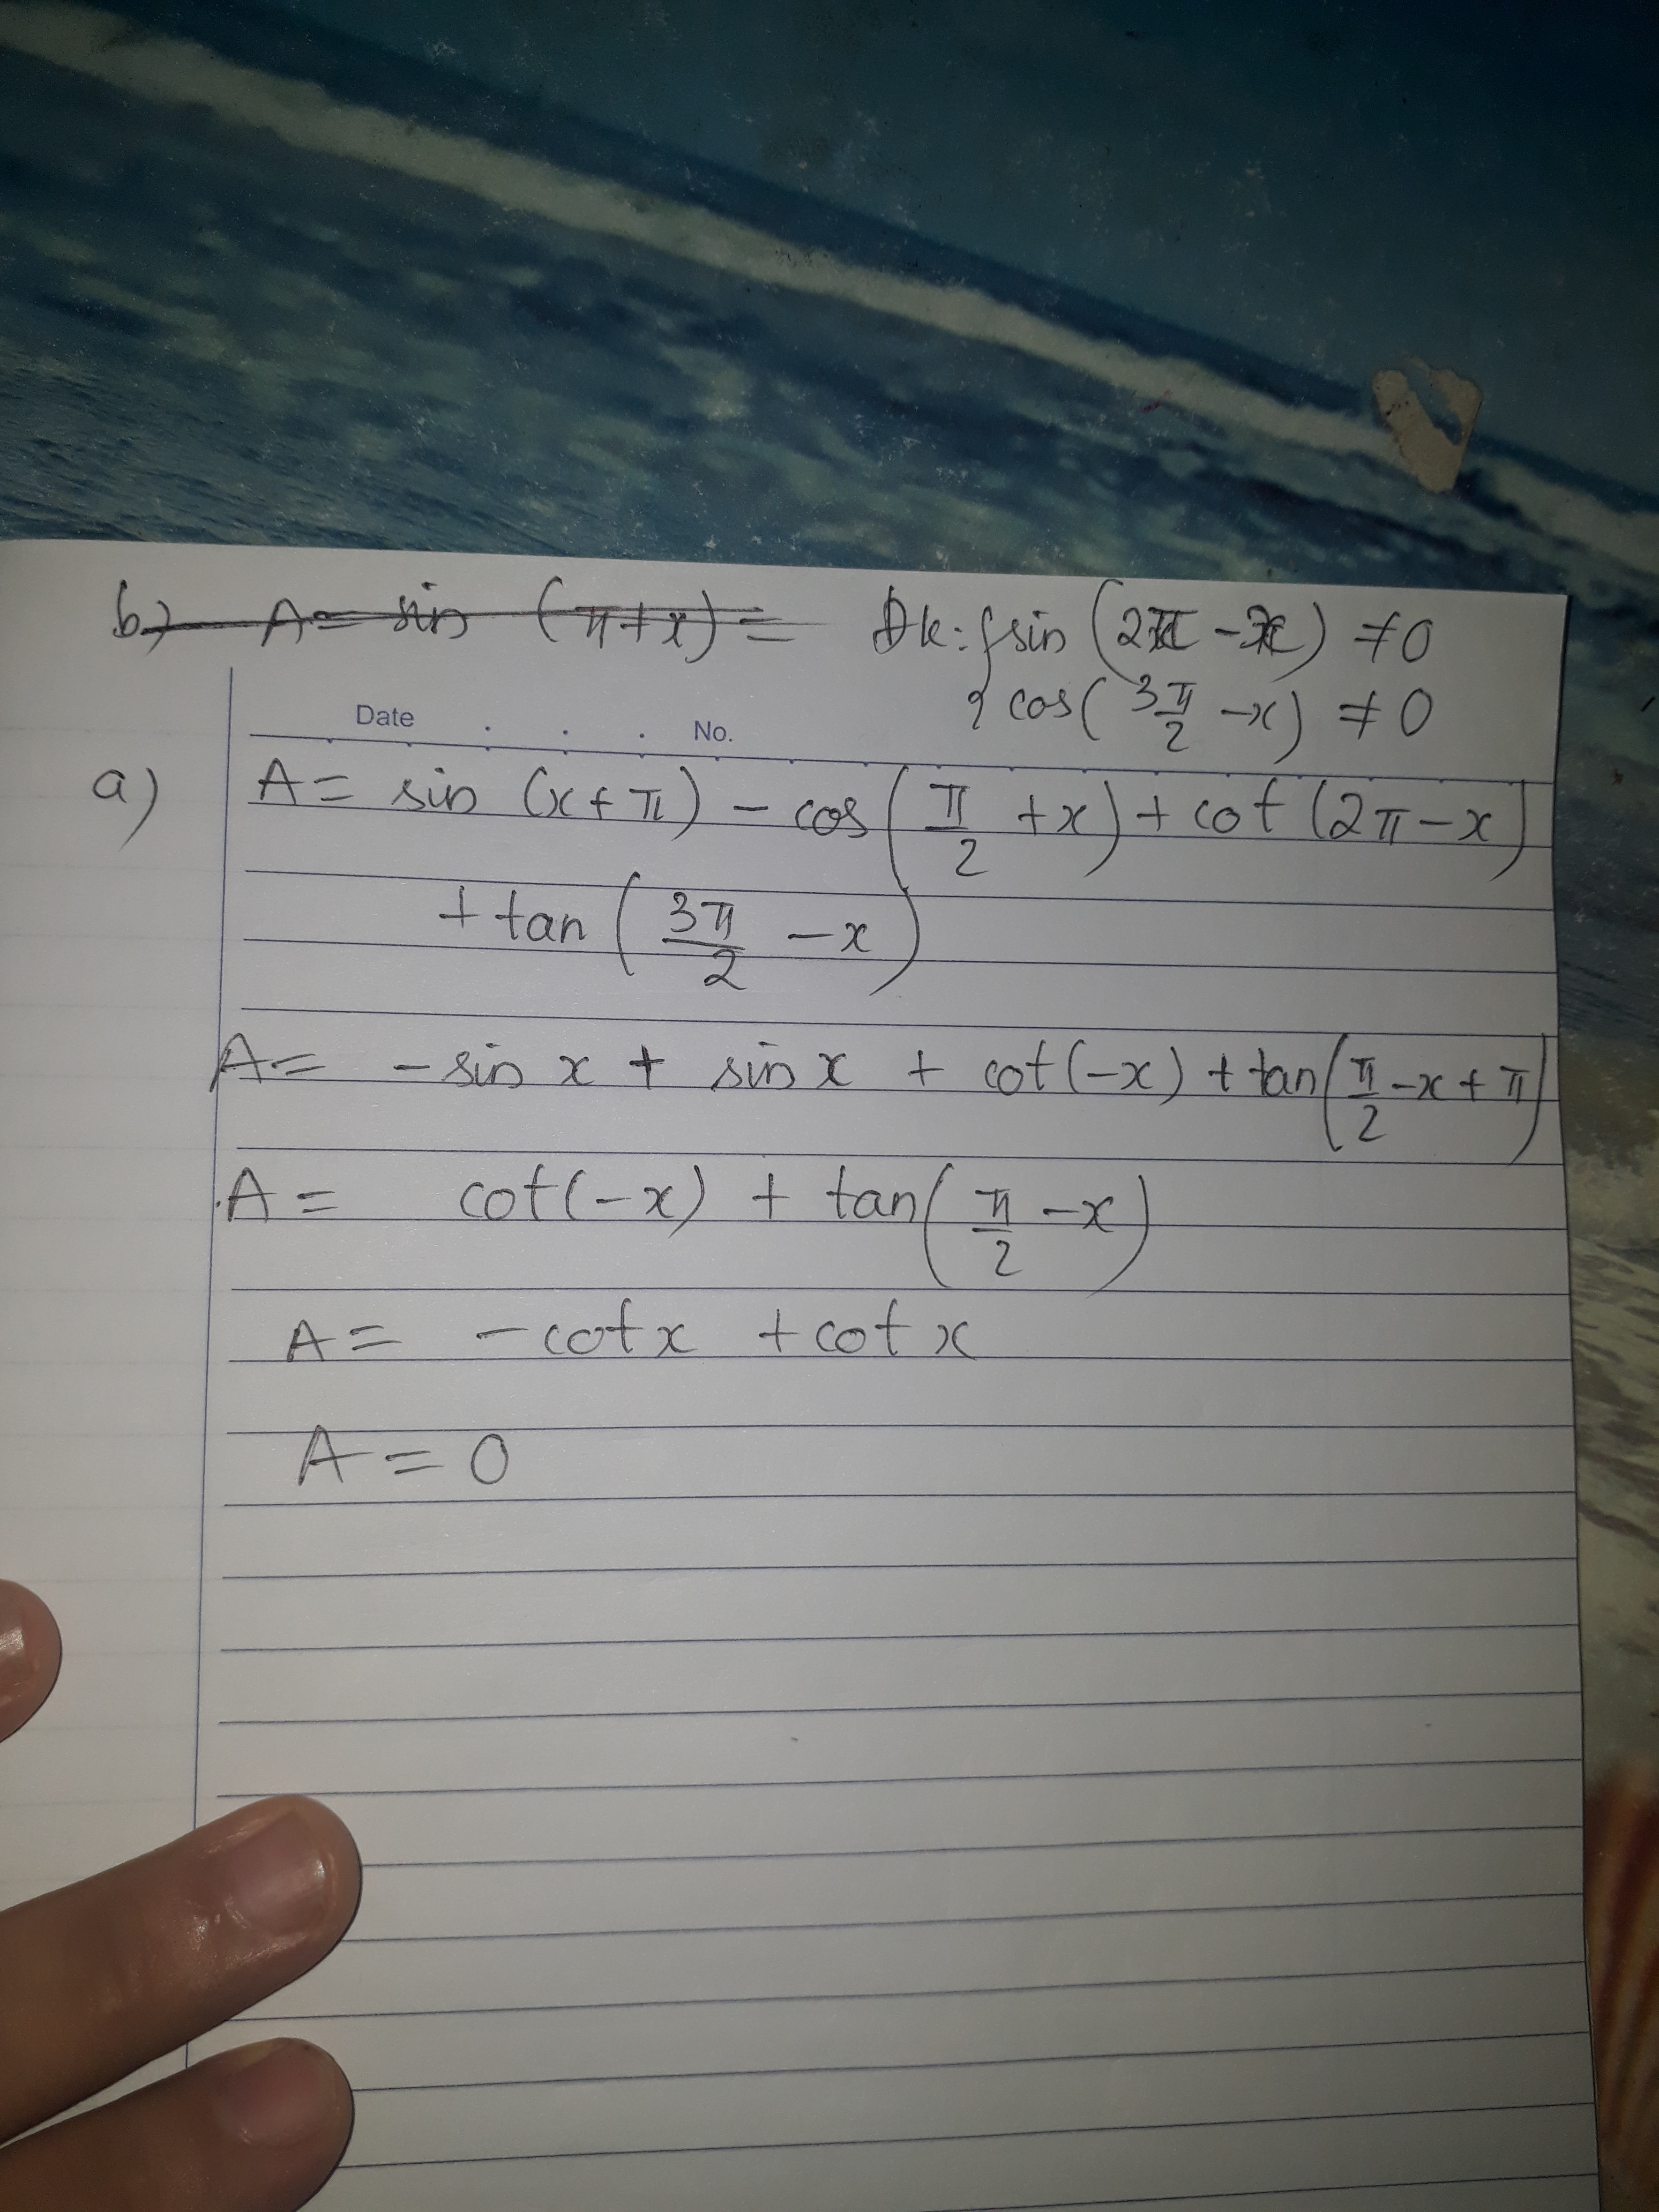 b) A = sin (π + x) = Đk: { sin (2π - x) ≠ 0
cos( 3π/2 - x) ≠ 0
Date . . . No.
a) A = sin (x + π) - cos (π/2 + x) + cot (2π - x)
+ tan (3π/2 - x)
A = - sin x + sin x + cot(-x) + tan(π/2 - x + π)
A = cot(-x) + tan(π/2 - x)
A = - cot x + cot x
A = 0